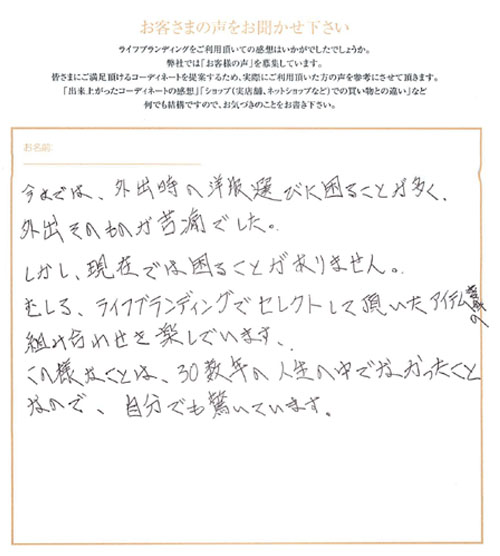 お客さまの声をお聞かせ下さい
ライフブランディングをご利用頂いての感想はいかがでしたでしょうか。
弊社では「お客様の声」を募集しています。
皆さまにご満足頂けるコーディネートを提案するため、実際にご利用頂いた方の声を参考にさせて頂きます。
「出来上がったコーディネートの感想」「ショップ(実店舗、ネットショップなど)での買い物との違い」など
何でも結構ですので、お気づきのことをお書き下さい。
お名前:
今までは、外出時の洋服選びに困ることが多く、
外出そのものが苦痛でした。
しかし、現在では困ることがありません。
むしろ、ライフブランディングでセレクトして頂いたアイテムの
組み合わせを楽しでいます、
この様なことは、30数年の人生の中でなかったこと
なので、自分でも驚いています。